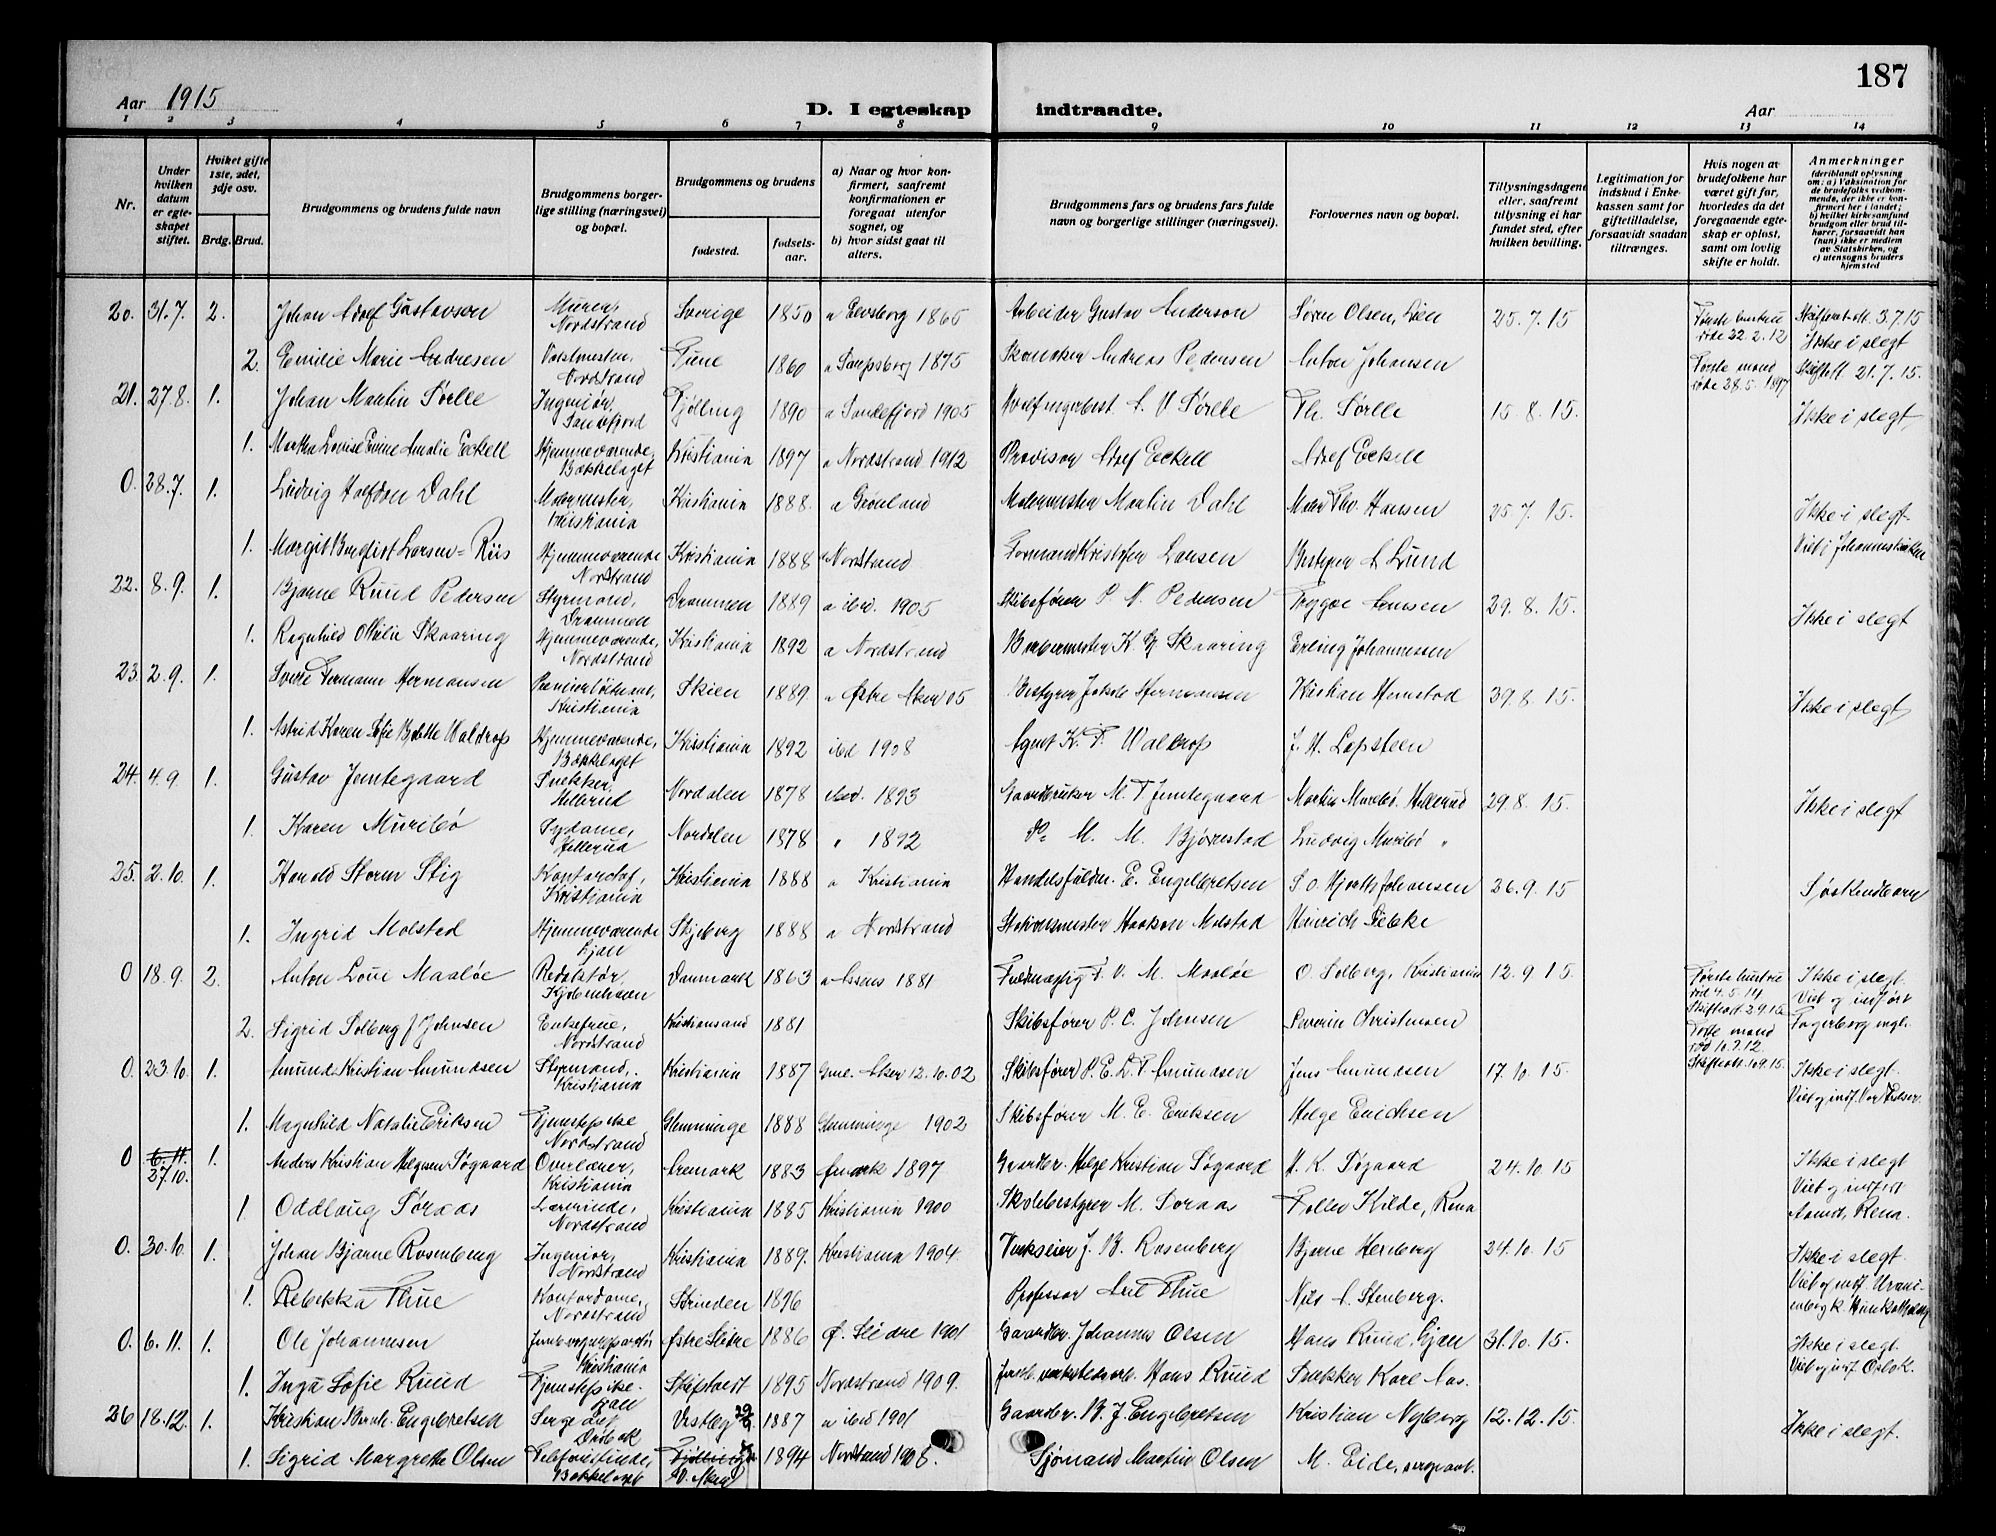 187
Aar 1915
D. I egteskap indtraadte.
Aar
1 2 3 4 5 6 7 8 9 10 11 12 13 14
Nr.
Under hvilken datum er egteskapet stiftet.
Hvilket gifte 1ste, 2det, 3dje osv.
Brdg. Brud.
Brudgommens og brudens fulde navn
Brudgommens borgerlige stilling (næringsvei) og bopæl.
Brudgommens og brudens
fødested.
fødselsaar.
a) Naar og hvor konfirmert, saafremt konfirmationen er foregaat utenfor sognet, og
b) hvor sidst gaat til alters.
Brudgommens fars og brudens fars fulde navn og borgerlige stillinger (næringsvei).
Forlovernes navn og bopæl.
Tillysningsdagene eller, saafremt tillysning ei har fundet sted, efter hvilken bevilling.
Legitimation for indskud i Enkekassen samt for giftetilladelse, forsaavidt saadan tiltrænges.
Hvis nogen av brudefolkene har været gift før, hvorledes da det foregaaende egteskap er opløst, samt om lovlig skifte er holdt.
Anmerkninger (deriblandt oplysning om: a) Vaksination for de brudefolks vedkommende, der ikke er konfirmert her i landet; b) hvilket kirkesamfund brudgom eller brud tilhører, forsaavidt han (hun) ikke er medlem av Statskirken, og c) utensogns bruders hjemsted
20. 31.7. 2. Johan Adolf Gustavsen Murer, Nordstrand Sverige 1850 a 1865 Arbeider Gustav Anderson Søren Olsen, Lien 25.7.15 Første hustru død 22.2.12 3.7.15 Ikke i slegt
2. Emilie Marie Andresen Nordstrand Tune 1860 a Sarpsborg 1875 Andreas Pedersen Anton Johansen Første mand død 28.5.1897 21.7.15.
21. 27.8. 1. Johan Martin Sørlle Ingeniør, Sandefjord Tjølling 1890 a Sandefjord 1905 Sørlle Th. Sørlle 15.8.15. Ikke i slegt
1. Martha Lovise Amalie Eckell Hjemmeværende, Bækkelaget Kristiania 1897 a Nordstrand 1912 Provisor Adolf Eckell Adolf Eckell
0. 28.7. 1. Ludvig Halfdan Dahl Malermester, Kristiania Kristiania 1888. a Grønland Malermester Martin Dahl Maler Thv. Hansen 25.7.15. Ikke i slegt
1. Margit Larsen-Riis Hjemmeværende Nordstrand Kristiania 1888 a Nordstrand Formand Kristoffer Larsen Bestyrer A. Lund Viet i Johanneskirken
22. 8.9. 1. Bjarne Ruud Pedersen Styrmand, Drammen Drammen 1889 a ibid. 1905 Skibsfører P. N. Pedersen Trygve 29.8.15. Ikke i slegt
1. Ragnhild Othilie Skaaring Hjemmeværende, Nordstrand Kristiania 1892 a Nordstrand K. Skaaring Erling Johannessen
23. 2.9. 1. Sverre Hermann Hermansen Premierløitnant, Kristiania Skien 1889 a Østre Aker 05 Bestyrer Jakob Hermansen Kristian Hemstad 29.8.15. Ikke i slegt
1. Astrid Karen Sofie Bolette Waldrop Hjemmeværende, Bækkelaget Kristiania 1892 ibid 1908 Agent K. F. Waldrop J. H. Lepsteen
24. 4.9. 1. Gustav Jemtegaard Snekker, Hellerud Nordalen 1878 ibid. 1893 Gaardbruker M. T. Jemtegaard Martin Muribø. Hellerud 29.8.15. Ikke i slegt
1. Karen Muribø Sydame, Hellerud Nordalen 1878 " 1892 Do M. M. Bjørestad Ludvig Muribø "
25. 2.10. 1. Harald Storm Stig Kristiania Kristiania 1888 a Kristiania E. Engebretsen S. O. Hjorth Johansen 26.9.15 Søskendbarn
1. Ingrid Molstad Hjemmeværende Ljan Skjeberg 1888 a Nordstrand Stationsmester Haakon Molstad Hinrich Siebke
0 18.9. 2. Anton Loui Maaløe Redaktør, Kjøbenhavn Danmark 1863 a Assens 1881 V. M. Maaløe O. Solberg, Kristiania 12.9.15. Første hustru død 4.5.14 Ikke i slegt. Viet og indført Fagerborg
2. Sigrid Solberg f Johnsen Enkefrue, Nordstrand Kristiansand 1881 Skibsfører P. C. Johnsen Severin Christensen mand død 10.7.12.
0. 23.10. 1. Amund Kristian Amundsen Styrmand, Kristiania Kristiania 1887 Gml. Aker 12.10.02 Skibsfører P. E. L. F. Amundsen Jens Amundsen 17.10.15. Ikke i slegt. Viet og indf. Vor Frelser
1. Magnhild Natalie Eriksen Tjenestepike Nordstrand Glemminge 1888 Glemminge 1902 Skibsfører M. E. Eriksen Helge Erichsen
0 6.11. 27.10. 1. Anders Kristian Helgesen Tøgaard Overlærer, Kristiania Aremark 1883 Aremark 1897 Gaardbr. Helge Kristian Tøgaard H. K. Tøgaard 24.10.15 Ikke i slegt Viet og indført Aamot, Rena.
1. Oddlaug Soraas Lærerinde, Nordstrand Kristiania 1885 Kristiania 1900 Skolebestyrer M. Soraas Toller Kilde, Rena
0. 30.10. 1. Johan Bjarne Rosenberg Ingeniør, Nordstrand Kristiania 1889. Kristiania 1904. Verkseier J. B. Rosenberg Bjarne Herzberg 24.10.15 Ikke i slegt.
1. Rebekka Thue Kontordame, Nordstrand Strinden 1896 Professor Axel Thue Nils A. Stenberg. Viet og indf Uranienborg k.
0. 6.11. 1. Ole Johannesen Kristiania Østre Slidre 1886 Ø. Slidre 1901 Gaardbr. Johannes Olsen Hans Ruud, Ljan 31.10.15. Ikke i slegt.
1. Inga Sofie Ruud Tjenestepike. Ljan Skiptvedt 1895 Nordstrand 1909. Hans Ruud Snekker Karl Aas. Viet og indf Oslo k.
26 18.12. 1. Kristian Bernh. Engebretsen Sergeant Drøbak Vestby 1887 a ibid 1901 Gaardbr. B. J. Engebretsen Kristian Nyborg 12.12.15. Ikke i slegt.
1. Sigrid Margrethe Olsen Telefonistinde, Bækkelaget V. Aker 1894 Nordstrand 1908. Sjømand Martin Olsen M. Eide, sergeant.